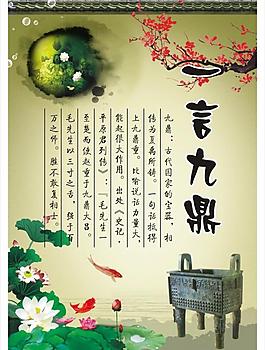 一言九鼎
九鼎：古代国家的宝器，相
传为夏禹所铸。一句话抵得
上九鼎重。比喻说话力量大，
能起很大作用。出处《史记·
平原君列传》：“毛先生一
至楚而使赵重于九鼎大吕。
毛先生以三寸之舌，强于百
万之师。胜不敢复相士。”